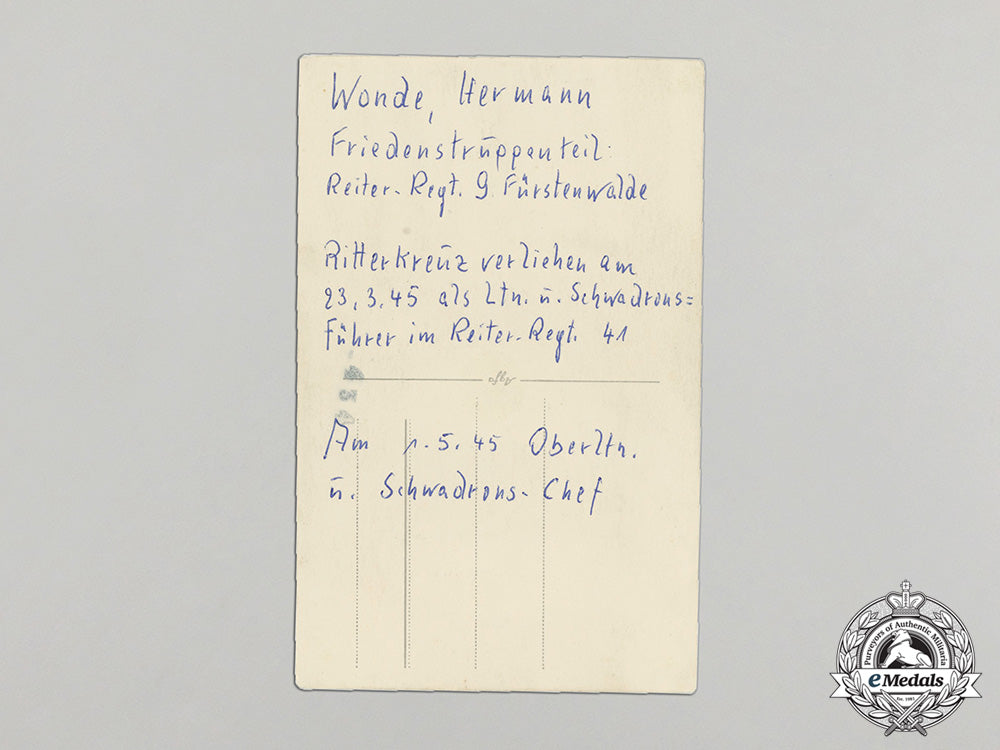 Wonde, Hermann
Friedenstruppenteil:
Reiter-Regt. 9 Fürstenwalde
Ritterkreuz verliehen am
23.3.45 als Ltn. u. Schwadrons=
führer im Reiter-Regt. 41
Am 1.5.45 Oberltn.
u. Schwadrons-Chef
Purveyors of Authentic Militaria
eMedals